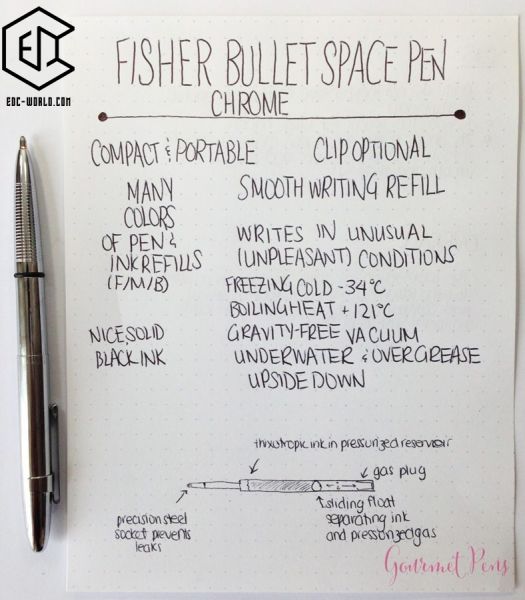 EDC-WORLD.COM
FISHER BULLET SPACE PEN
CHROME
COMPACT & PORTABLE
CLIP OPTIONAL
MANY
COLORS
OF PEN &
INK REFILLS
(F/M/B)
SMOOTH WRITING REFILL
WRITES IN UNUSUAL
(UNPLEASANT) CONDITIONS
FREEZING COLD -34°C
BOILING HEAT +121°C
GRAVITY-FREE VACUUM
UNDERWATER & OVER GREASE
UPSIDE DOWN
NICE, SOLID
BLACK INK
thixotropic ink in pressurized reservoir
gas plug
precision steel
socket prevents
leaks
sliding float
separating ink
and pressurized gas
Gourmet Pens